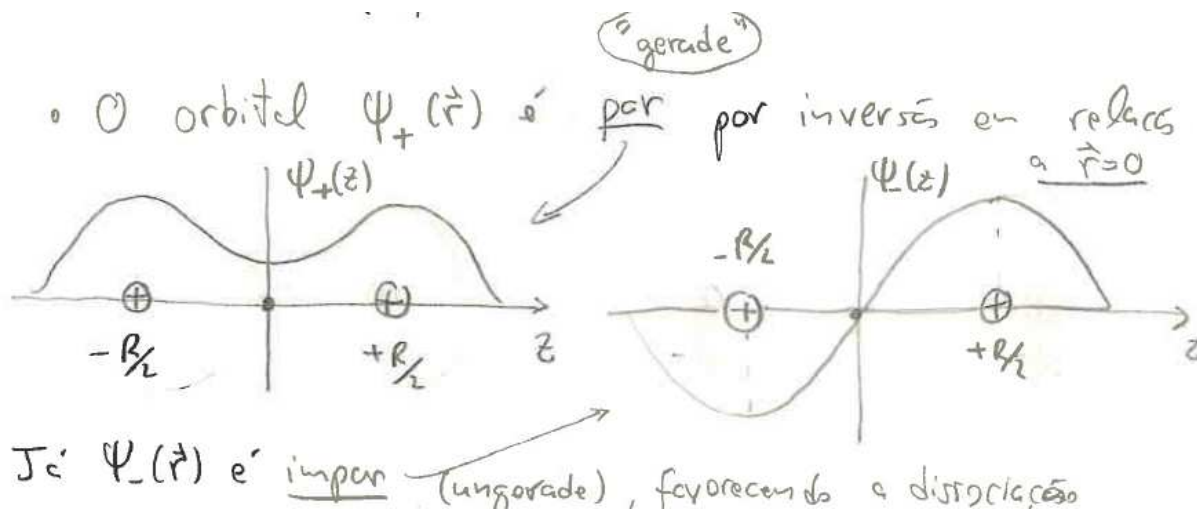 "gerade"
• O orbital Ψ₊(r⃗) é par por inversão em relação
a r⃗=0
Ψ₊(z)
-R/2
+R/2
z
Ψ₋(z)
-R/2
+R/2
z
Já Ψ₋(r⃗) é impar (ungerade), favorecendo a dissociação